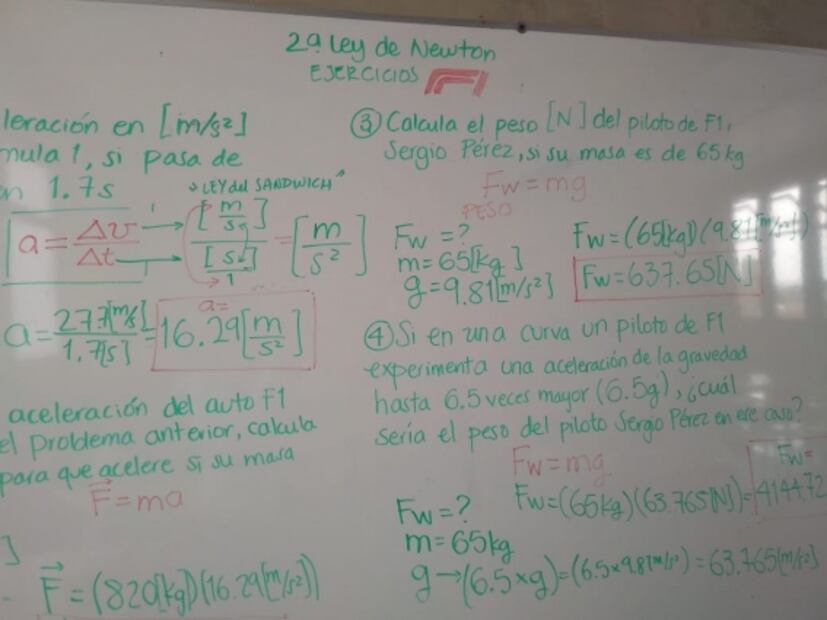 2ª Ley de Newton
EJERCICIOS F1
leración en [m/s²]
mula 1, si pasa de
n 1.7s
"LEY del SANDWICH"
a = Δv / Δt → [m/s] / [s]/1 = [m/s²]
a = 27.7[m/s] / 1.7[s] = a= 16.29[m/s²]
aceleración del auto F1
el problema anterior, calcula
para que acelere si su masa
F = ma
]
F = (820[kg])(16.29[m/s²])
③ Calcula el peso [N] del piloto de F1,
Sergio Pérez, si su masa es de 65kg
Fw = mg
PESO
Fw = ?
m = 65[kg]
g = 9.81[m/s²]
Fw = (65[kg])(9.81[m/s²])
Fw = 637.65[N]
④ Si en una curva un piloto de F1
experimenta una aceleración de la gravedad
hasta 6.5 veces mayor (6.5g), ¿cuál
sería el peso del piloto Sergio Pérez en ese caso?
Fw = mg
Fw = ?
m = 65kg
g → (6.5×g) = (6.5×9.81m/s²) = 63.765[m/s²]
Fw = (65kg)(63.765[N]) =
Fw =
4144.72